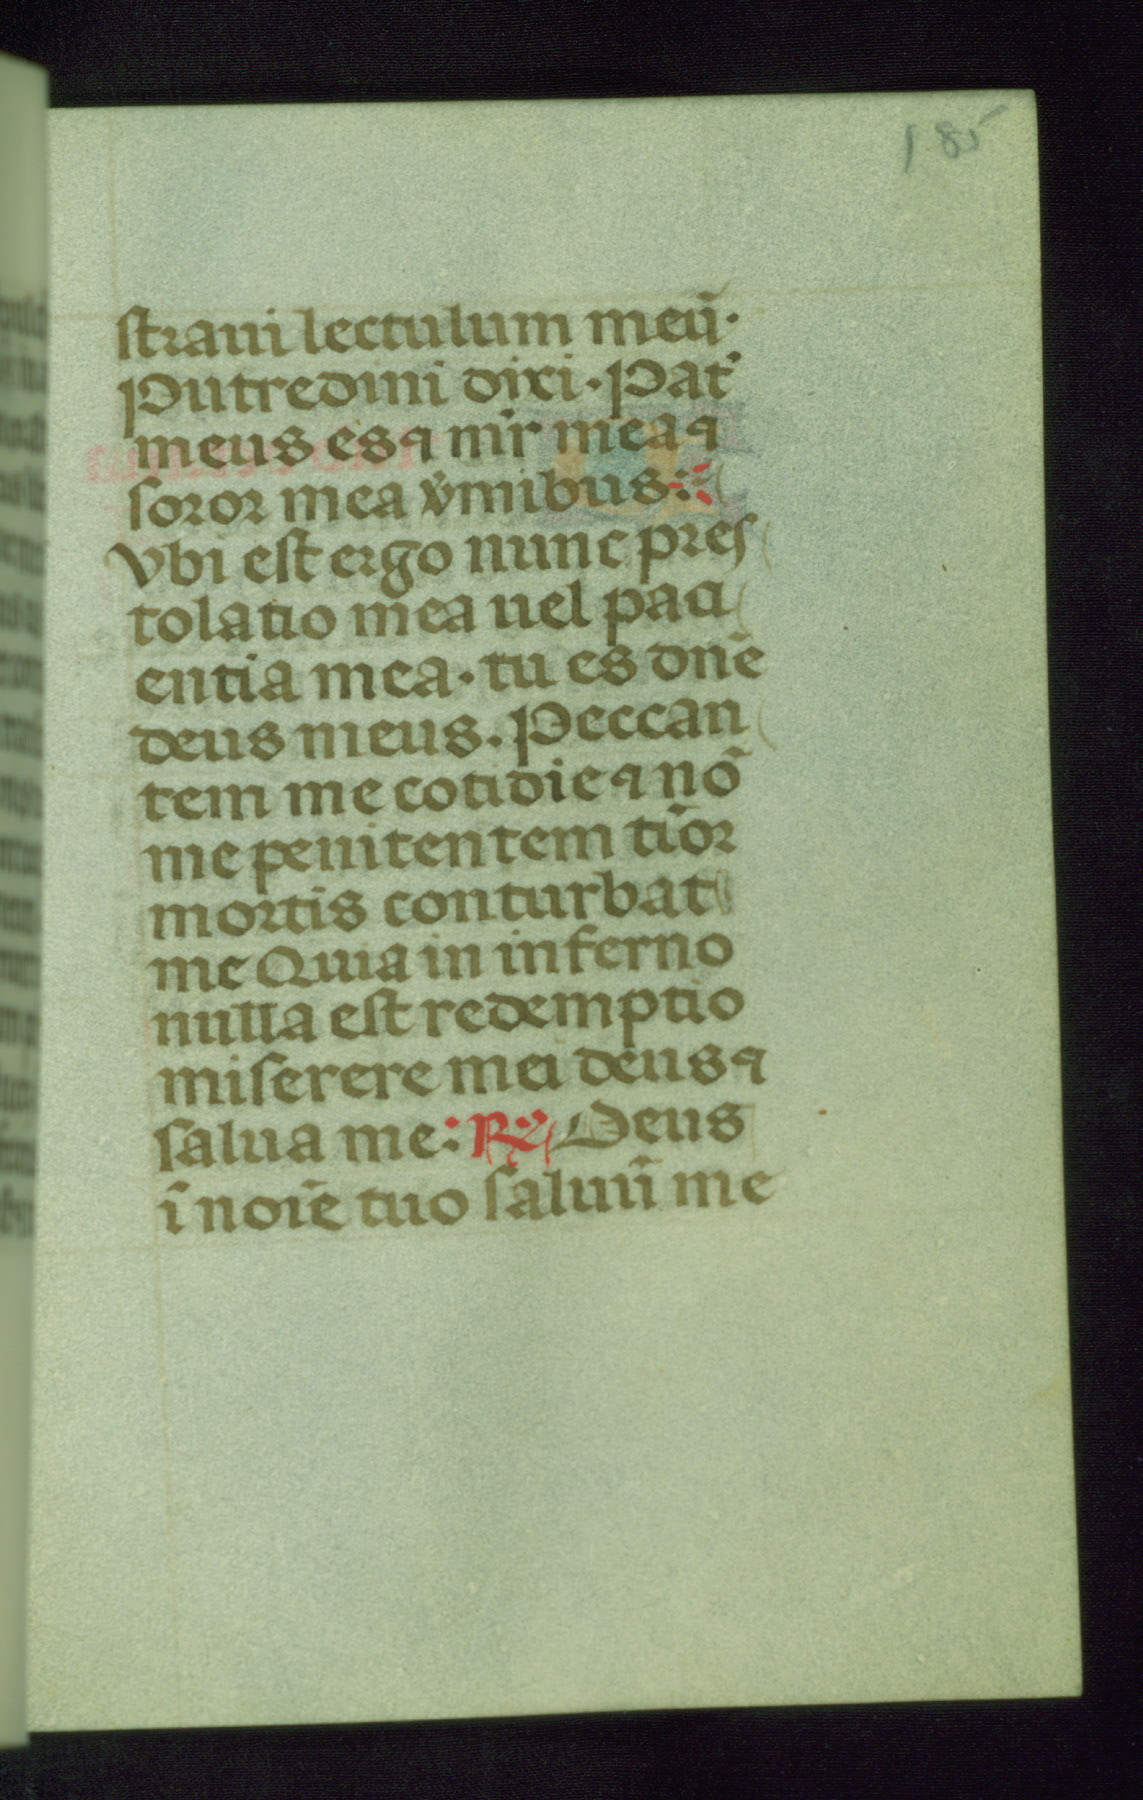 185
straui lectulum meū·
Putredini dixi· Pat᷒
meus es ꝗ mr̄ mea ꝗ
soror mea v̄mibus:
Vbi est ergo nunc pres
tolatio mea uel paci
entia mea· tu es dn̄e
deus meus. Peccan
tem me cotidie ꝗ nō
me penitentem tīor
mortis conturbat
me Quia in inferno
nulla est redemptio
miserere mei deus ꝗ
salua me: R℣ Deus
ī noīe tuo saluū me